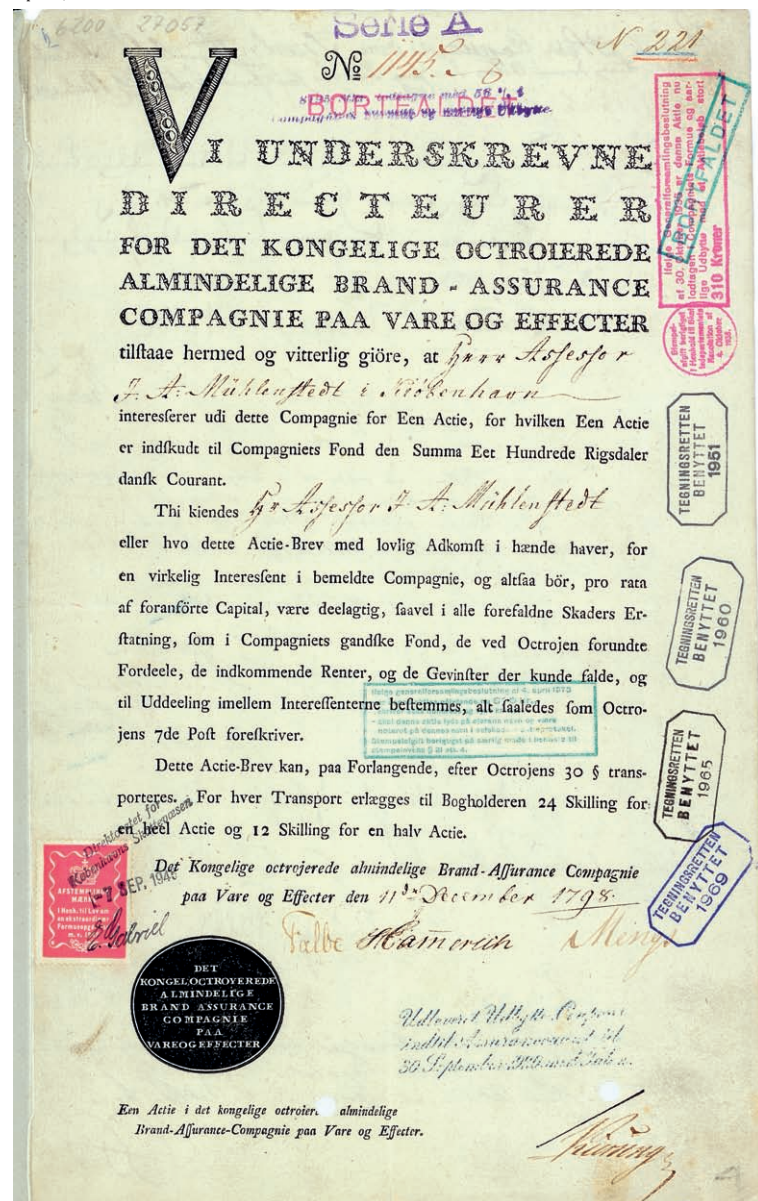 6200 27057
Serie A.
N 221
No 1145.
BORTFALDET
VI UNDERSKREVNE
DIRECTEURER
FOR DET KONGELIGE OCTROIEREDE
ALMINDELIGE BRAND-ASSURANCE
COMPAGNIE PAA VARE OG EFFECTER
tilſtaae hermed og vitterlig giöre, at Herr Aſseſsor
J. A: Mühlenſtedt i Kiöbenhavn
intereſſerer udi dette Compagnie for Een Actie, for hvilken Een Actie
er indſkudt til Compagniets Fond den Summa Eet Hundrede Rigsdaler
danſk Courant.
Thi kiendes Hr Aſseſsor J. A: Mühlenſtedt
eller hvo dette Actie-Brev med lovlig Adkomſt i hænde haver, for
en virkelig Intereſſent i bemeldte Compagnie, og altſaa bör, pro rata
af foranförte Capital, være deelagtig, ſaavel i alle forefaldne Skaders Er-
ſtatning, ſom i Compagniets gandſke Fond, de ved Octrojen forundte
Fordeele, de indkommende Renter, og de Gevinſter der kunde falde, og
til Uddeeling imellem Intereſſenterne beſtemmes, alt ſaaledes ſom Octro-
jens 7de Poſt foreſkriver.
Dette Actie-Brev kan, paa Forlangende, efter Octrojens 30 § trans-
porteres. For hver Transport erlægges til Bogholderen 24 Skilling for
en heel Actie og 12 Skilling for en halv Actie.
Det Kongelige octrojerede almindelige Brand-Aſſurance Compagnie
paa Vare og Effecter den 11 December 1798.
Hamerich
DET
KONGEL.OCTROYEREDE
ALMINDELIGE
BRAND ASSURANCE
COMPAGNIE
PAA
VARE OG EFFECTER
Een Actie i det kongelige octroiere almindelige
Brand-Aſſurance-Compagnie paa Vare og Effecter.
Ifølge Generalforsamlingsbeslutning
af 30. Oktober 1935 er denne Aktie nu
lodtagen i Compagniets Formue og aar-
lige Udbytte med et Aktiebeløb stort
310 Kroner
BORTFALDET
Stempel-
afgift berigtiget
4. Oktober
1935.
TEGNINGSRETTEN
BENYTTET
1951
TEGNINGSRETTEN
BENYTTET
1960
TEGNINGSRETTEN
BENYTTET
1965
TEGNINGSRETTEN
BENYTTET
1969
Ifølge generalforsamlingsbeslutning af 4. april 1973
skal denne aktie lyde på ejerens navn og være
noteret på dennes navn i selskabets
Direktoratet for
Københavns Skattevæsen
-7 SEP. 1945
E. Gabriel
Udleveret Udbytte Coupons
indtil
30 September